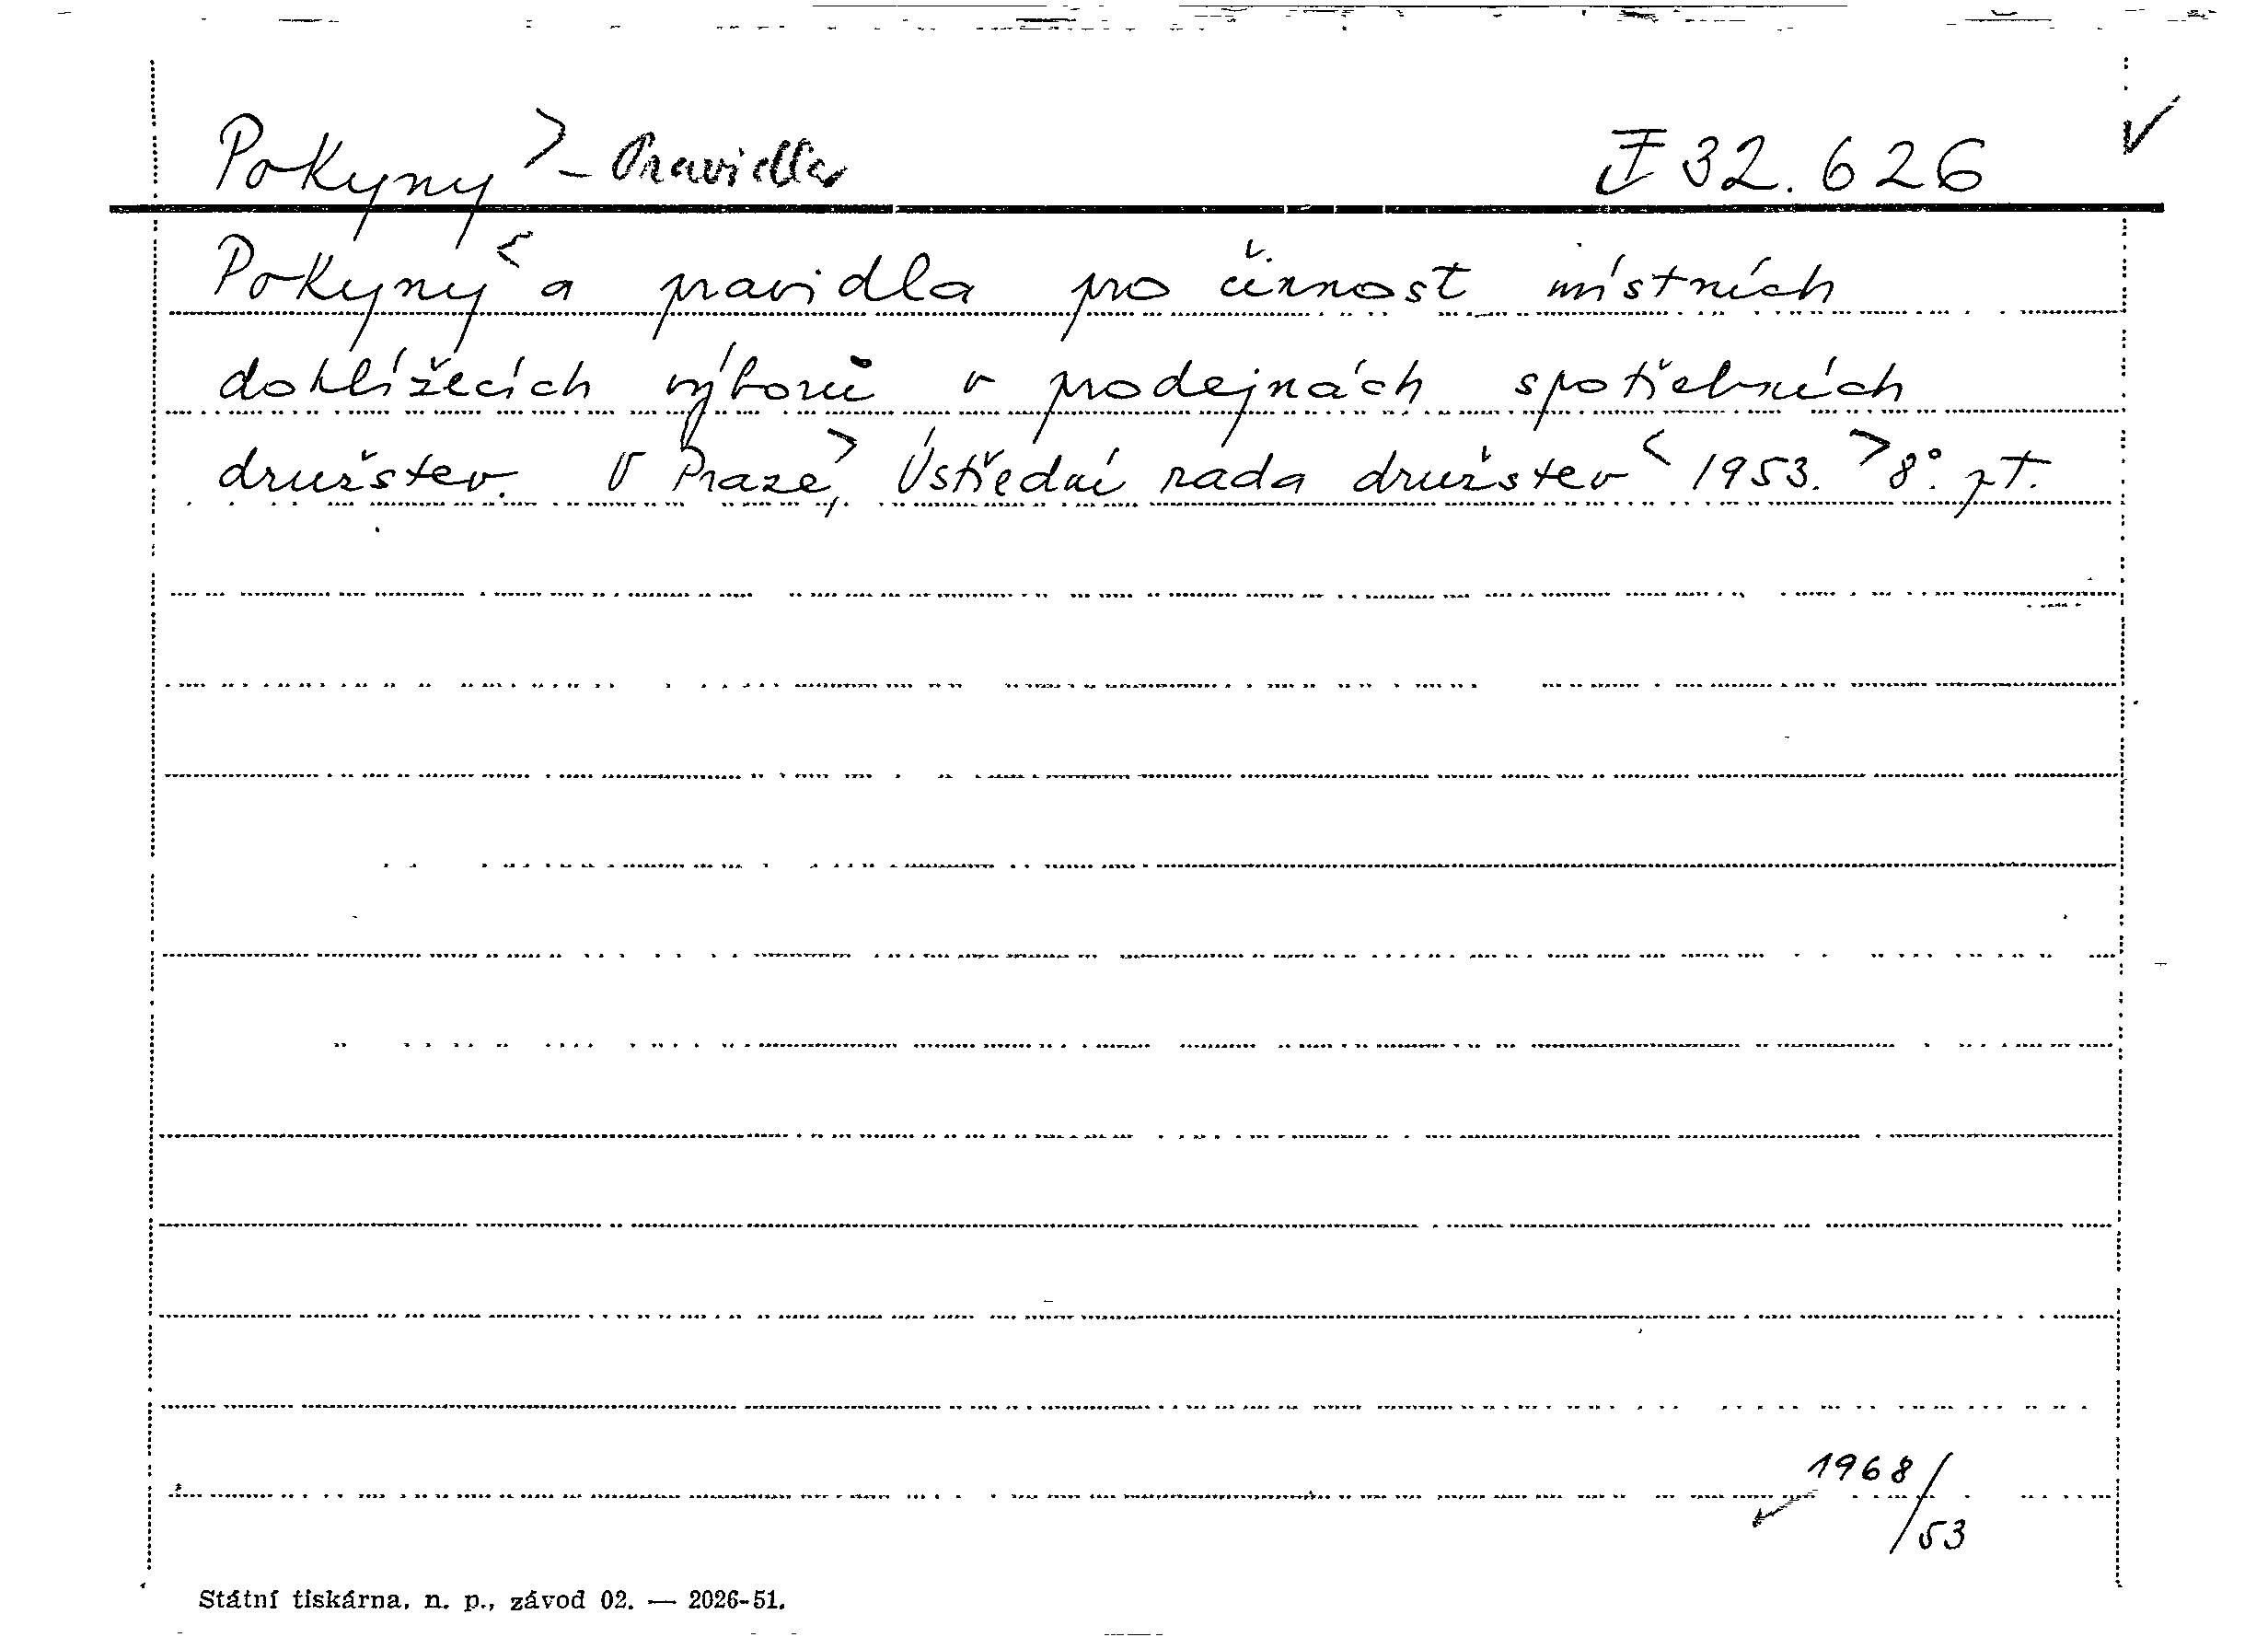 Pokyny > - Pravidla I 32.626 ✓
Pokyny < a pravidla pro činnost místních
dohlížecích výborů v prodejnách spotřebních
družstev. V Praze, > Ústřední rada družstev < 1953. > 8°. pt.
1968/
53
Státní tiskárna, n. p., závod 02. — 2026-51.